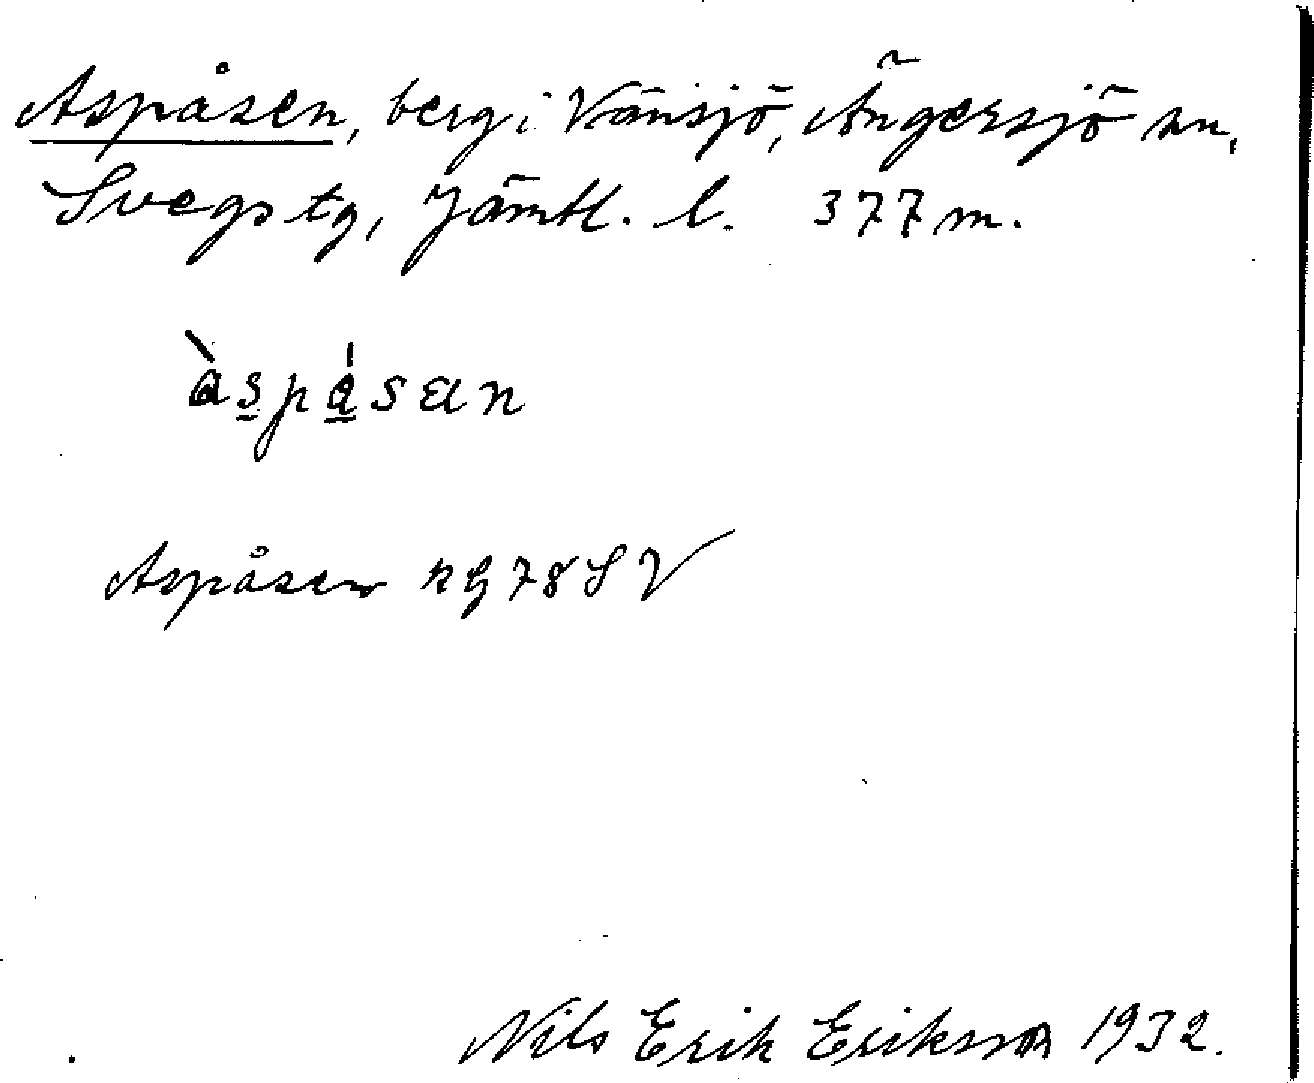 Aspåsen, berg i Vänsjö, Ängersjö sn,
Svegs tg, Jämtl. l. 377 m.
àspåsen
Aspåsen kG 78 SV
Nils Erik Eriksson 1932.